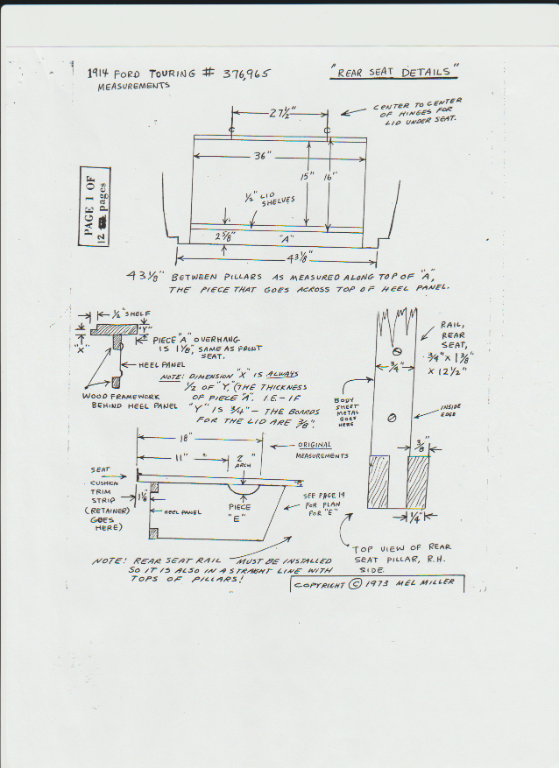 1914 FORD TOURING # 376,965
MEASUREMENTS
"REAR SEAT DETAILS"
27½"
CENTER TO CENTER
OF HINGES FOR
LID UNDER SEAT.
36"
15"
16"
½" LID
SHELVES
2⅜"
"A"
43⅛"
PAGE 1 OF
12 pages
43⅛" BETWEEN PILLARS AS MEASURED ALONG TOP OF "A",
THE PIECE THAT GOES ACROSS TOP OF HEEL PANEL.
½" SHELF
"Y"
"X"
PIECE "A" OVERHANG
IS 1⅛", SAME AS FRONT
SEAT.
HEEL PANEL
NOTE: DIMENSION "X" IS ALWAYS
½ OF "Y," (THE THICKNESS
OF PIECE "A". I.E.- IF
"Y" IS ¾" - THE BOARDS
FOR THE LID ARE ⅜".
WOOD FRAMEWORK
BEHIND HEEL PANEL
RAIL,
REAR
SEAT,
¾" X 1⅜"
X 12½"
¾"
BODY
SHEET
METAL
GOES
HERE
INSIDE
EDGE
⅜"
¼"
TOP VIEW OF REAR
SEAT PILLAR, R.H.
SIDE.
18"
11"
2"
ARCH
ORIGINAL
MEASUREMENTS
SEAT
CUSHION
TRIM
STRIP
(RETAINER)
GOES
HERE)
1⅛"
HEEL PANEL
PIECE
"E"
SEE PAGE 14
FOR PLAN
FOR "E"
NOTE: REAR SEAT RAIL MUST BE INSTALLED
SO IT IS ALSO IN A STRAIGHT LINE WITH
TOPS OF PILLARS!
COPYRIGHT © 1973 MEL MILLER